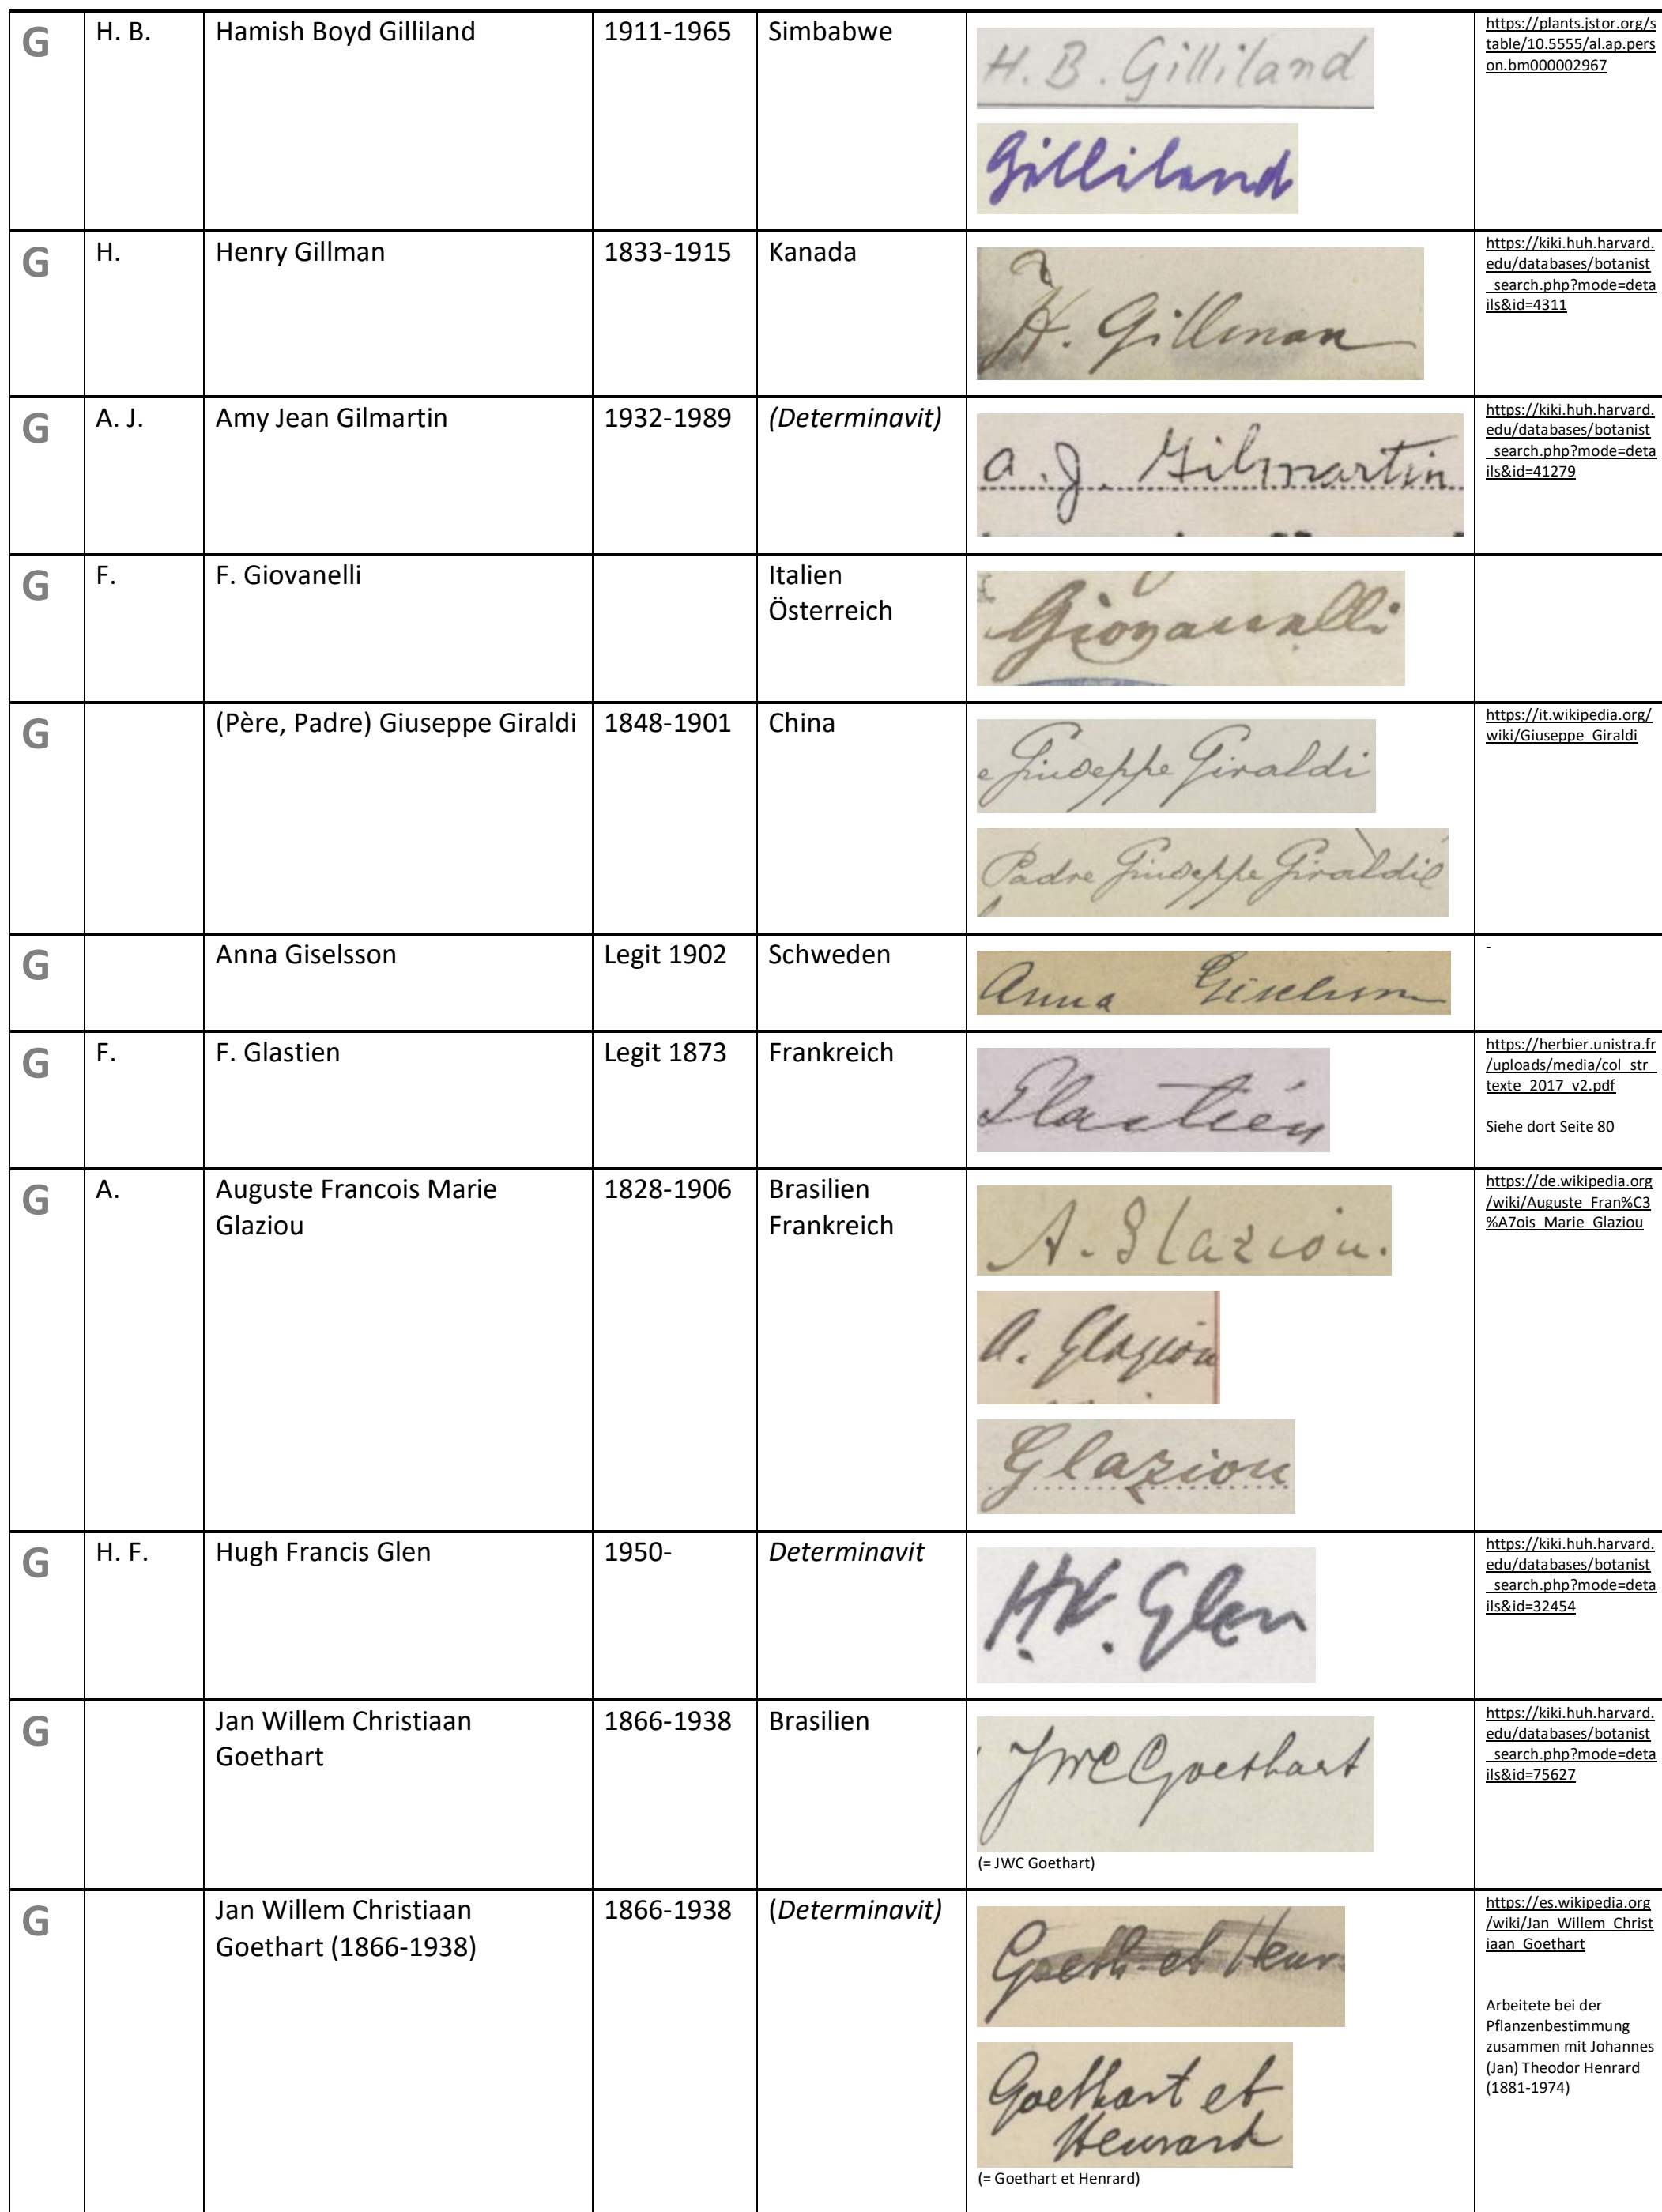 G H. B. Hamish Boyd Gilliland 1911-1965 Simbabwe
H. B. Gilliland
Gilliland
https://plants.jstor.org/s
table/10.5555/al.ap.pers
on.bm000002967
G H. Henry Gillman 1833-1915 Kanada
H. Gillman
https://kiki.huh.harvard.
edu/databases/botanist
_search.php?mode=deta
ils&id=4311
G A. J. Amy Jean Gilmartin 1932-1989 (Determinavit)
a. J. Gilmartin
https://kiki.huh.harvard.
edu/databases/botanist
_search.php?mode=deta
ils&id=41279
G F. F. Giovanelli Italien
Österreich
Giovanelli
G (Père, Padre) Giuseppe Giraldi 1848-1901 China
e Giuseppe Giraldi
Padre Giuseppe Giraldi
https://it.wikipedia.org/
wiki/Giuseppe_Giraldi
G Anna Giselsson Legit 1902 Schweden
Anna Giselsson
-
G F. F. Glastien Legit 1873 Frankreich
Glastien
https://herbier.unistra.fr
/uploads/media/col_str_
texte_2017_v2.pdf
Siehe dort Seite 80
G A. Auguste Francois Marie
Glaziou
1828-1906 Brasilien
Frankreich
A. Glaziou.
A. Glaziou
Glaziou
https://de.wikipedia.org
/wiki/Auguste_Fran%C3
%A7ois_Marie_Glaziou
G H. F. Hugh Francis Glen 1950- Determinavit
H.F. Glen
https://kiki.huh.harvard.
edu/databases/botanist
_search.php?mode=deta
ils&id=32454
G Jan Willem Christiaan
Goethart
1866-1938 Brasilien
JWC Goethart
(= JWC Goethart)
https://kiki.huh.harvard.
edu/databases/botanist
_search.php?mode=deta
ils&id=75627
G Jan Willem Christiaan
Goethart (1866-1938)
1866-1938 (Determinavit)
Goeth. et Henr.
Goethart et
Henrard
(= Goethart et Henrard)
https://es.wikipedia.org
/wiki/Jan_Willem_Christ
iaan_Goethart
Arbeitete bei der
Pflanzenbestimmung
zusammen mit Johannes
(Jan) Theodor Henrard
(1881-1974)